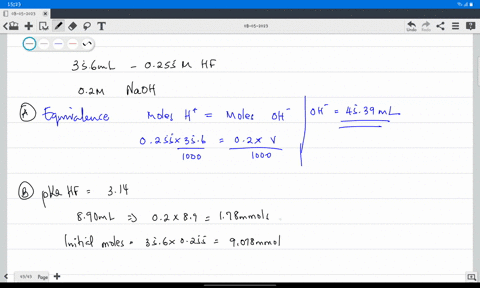 15:13
18-05-2023
35.6mL - 0.255 M HF
0.2M NaOH
A Equivalence moles H⁺ = moles OH⁻ OH⁻ = 45.39 mL
0.255×35.6/1000 = 0.2×V/1000
B pka HF = 3.14
8.90mL ⇒ 0.2×8.9 = 1.78mmols.
Initial moles = 35.6×0.255 = 9.078mmol
Undo Redo
Page